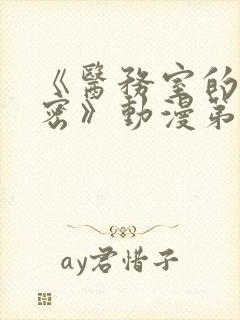 《醫務室的
密》動漫第
ay君惜子